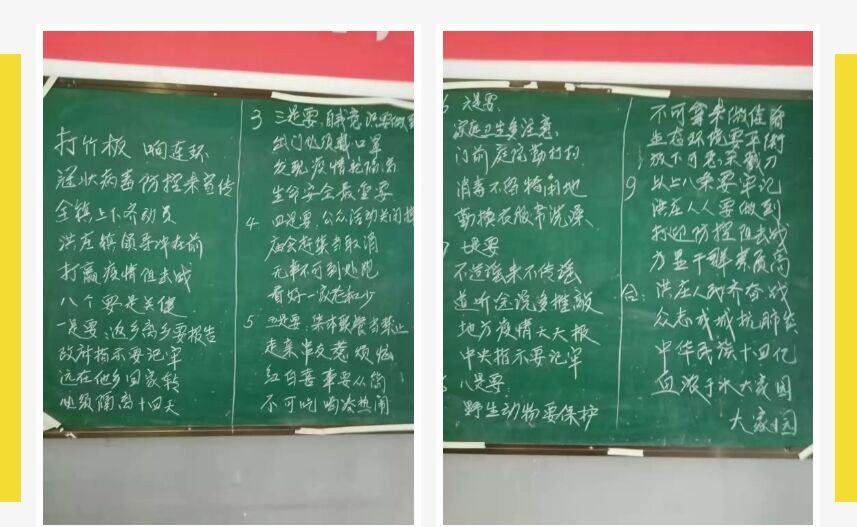 打竹板 响连环
冠状病毒防控来宣传
全镇上下齐动员
洪庄镇领导冲在前
打赢疫情阻击战
八个要是关键
一是要:返乡离乡要报告
政府指示要记牢
远在他乡回家转
必须隔离十四天
3 三是要:自我意识要做到
出门必须戴口罩
发现疫情乾隔离
生命安全最重要
4. 四是要:公众活动关闭
庙会赶集当取消
元事不可到处跑
看好一家老和少
5 五是要:集体聚餐当禁止
走亲串友惹烦恼
红白喜事要从简
不可吃喝凑热闹
六是要:
家庭卫生多注意
门前庭院勤打扫
消毒不留特角地
勤换衣服常洗澡
七是要
不造谣来不传谣
道听途说要推敲
地方疫情天天报
中央指示要记牢
八是要:
野生动物要保护
不可拿来做佳肴
生态环境要平衡
放下可恶杀戮刀
9 以上八条要牢记
洪庄人人要做到
打迎防控阻击战
方显干群素质高
合: 洪庄人民齐奋战
众志成城抗肺炎
中华民族十四亿
血浓于水大家园
大家园